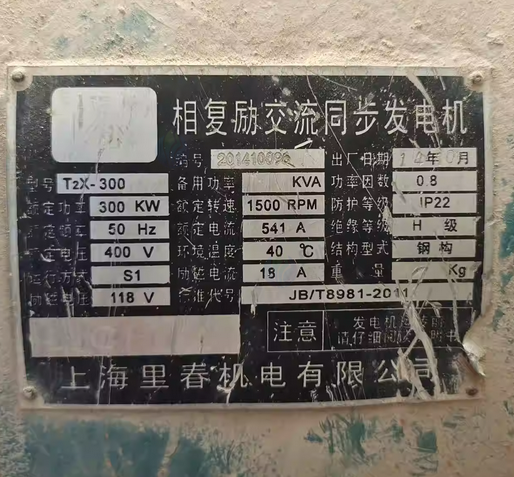 相复励交流同步发电机
编号 201410096 出厂日期 年 月
型号 TzX-300 备用功率 KVA 功率因数 0.8
额定功率 300 KW 额定转速 1500 RPM 防护等级 IP22
额定频率 50 Hz 额定电流 541 A 绝缘等级 H 级
额定电压 400 V 环境温度 40 ℃ 结构型式 钢构
运行方式 S1 励磁电流 18 A 重量 Kg
励磁电压 118 V 标准代号 JB/T8981-2011
注意 发电机
请仔细阅 书
上海里春机电有限公司